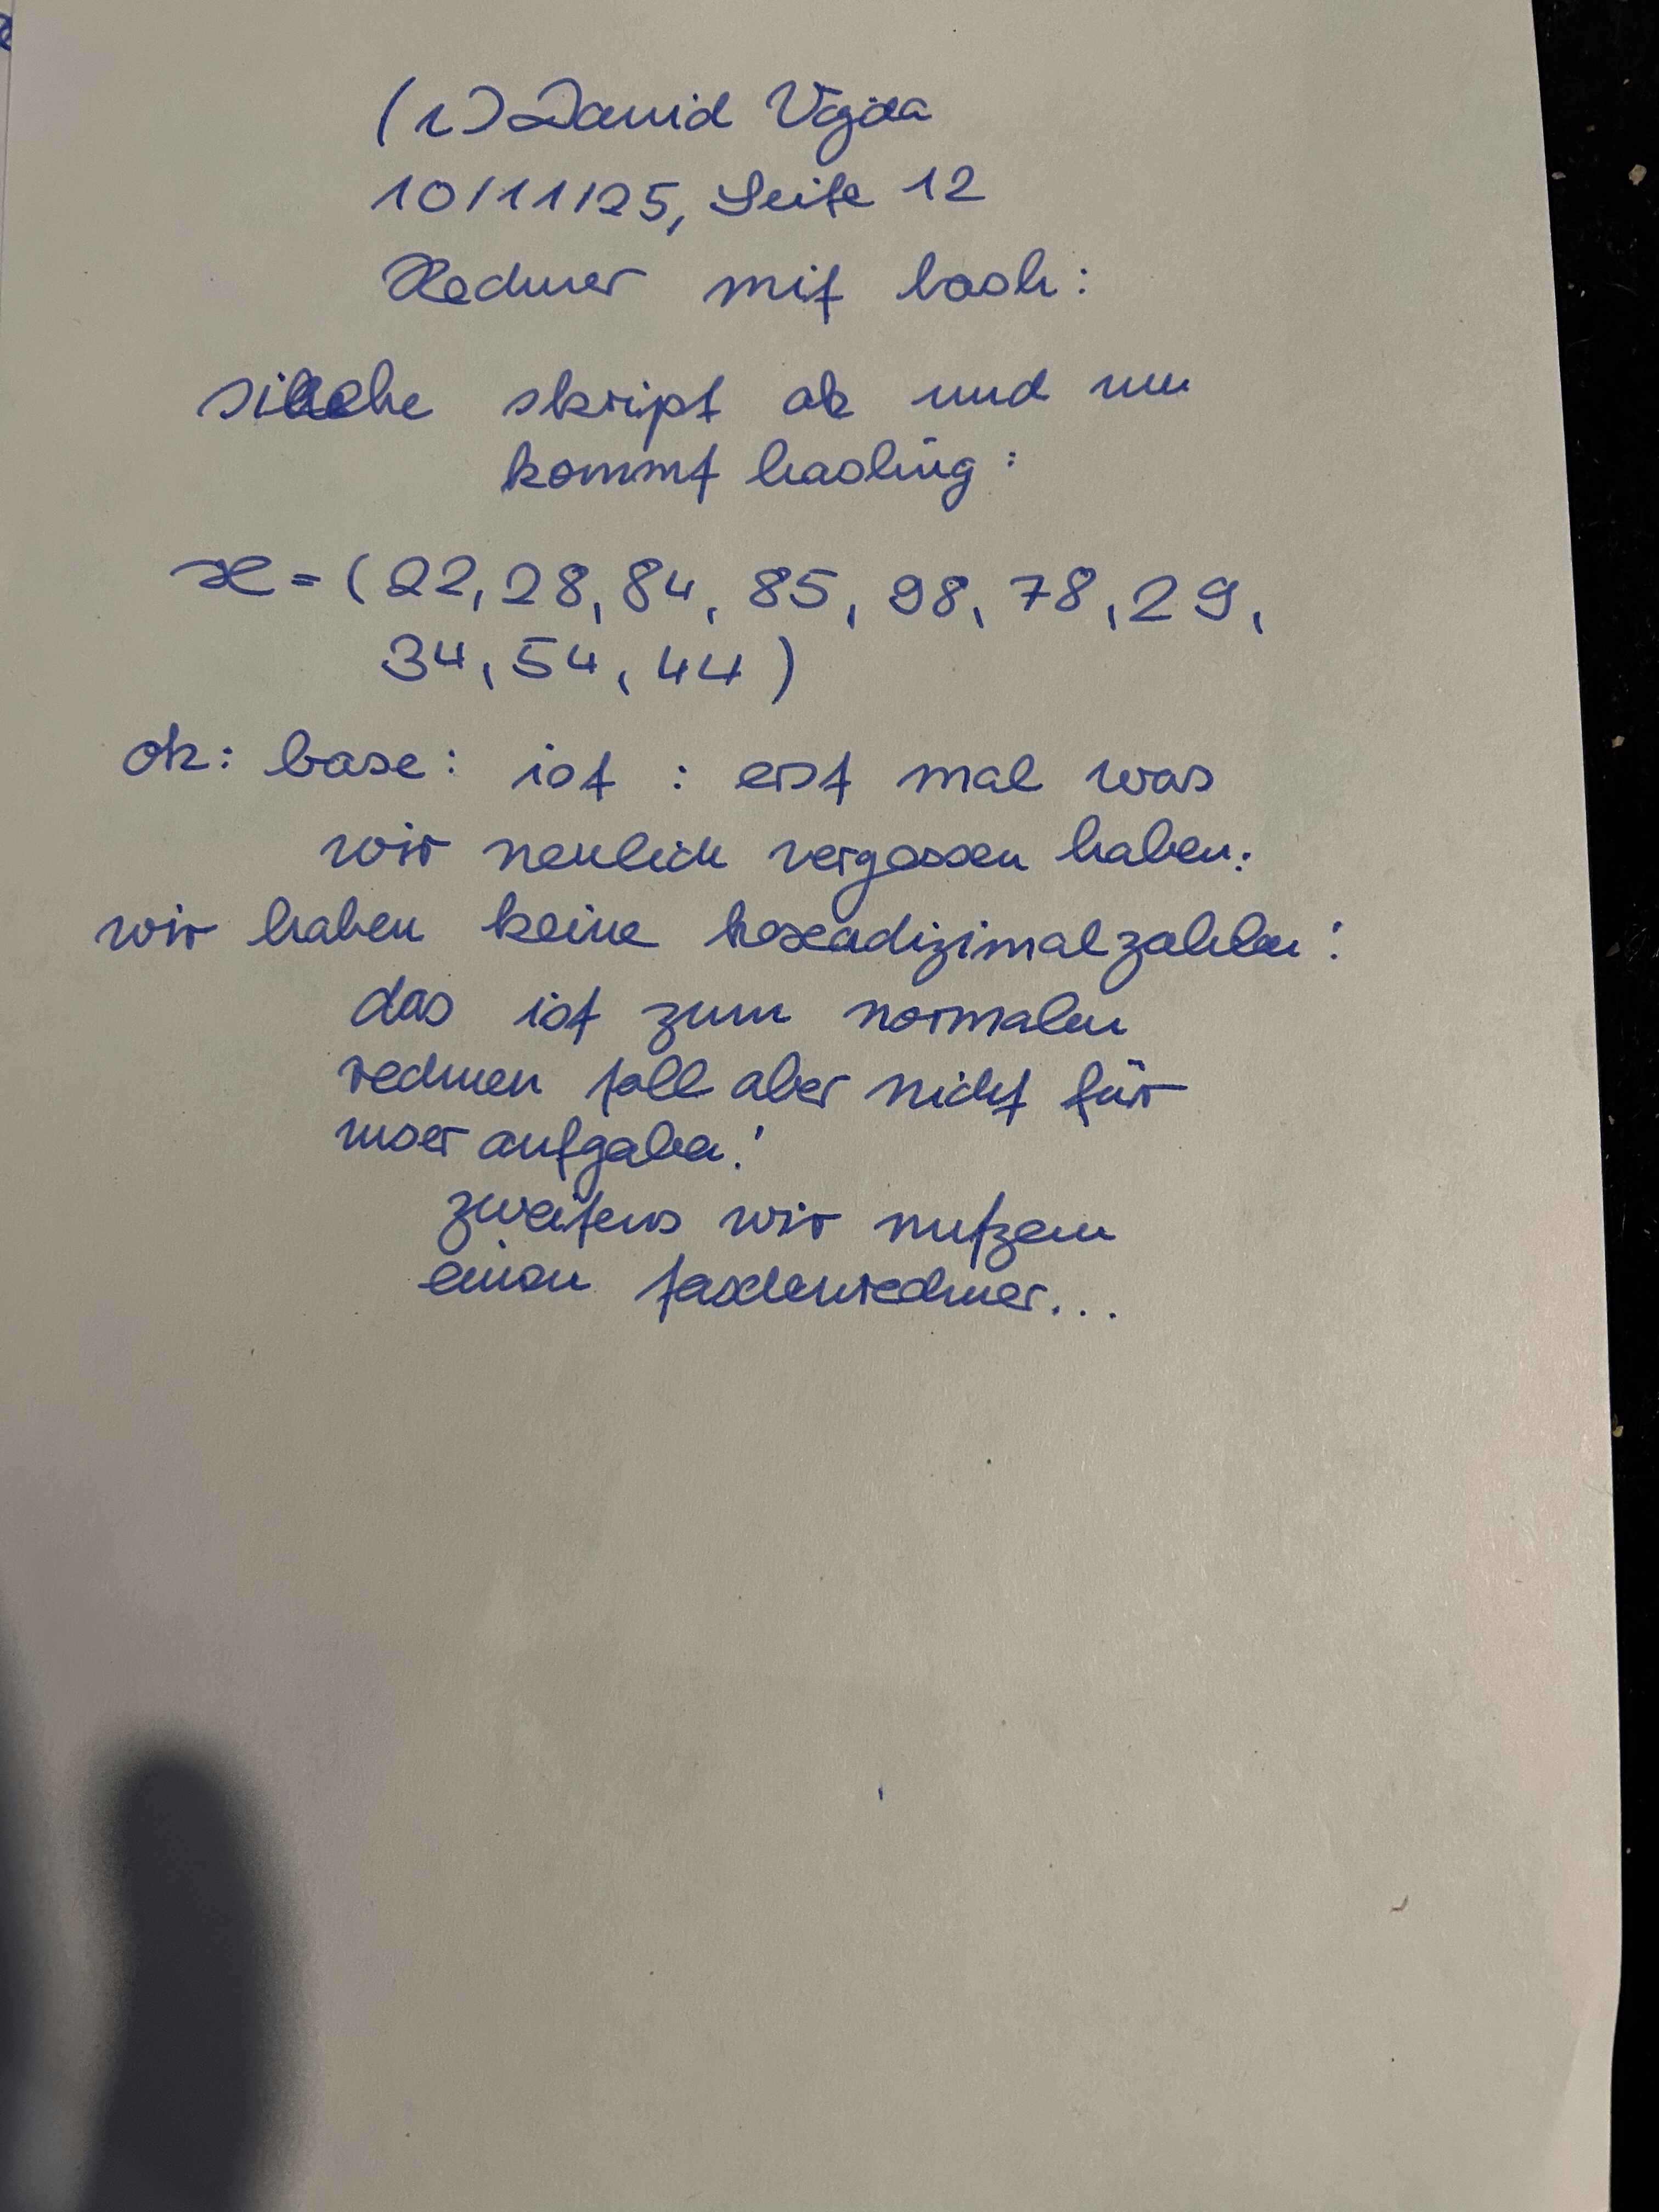 (c) David Vajda
10/11/25, Seite 12
Rechner mit bash:
siehe skript ab und nun
kommt hashing:
x=(22,28,84,85,98,78,29,
34,54,44)
ok: base: ist: erst mal was
wir neulich vergessen haben:
wir haben keine hexadizimalzahlen!
das ist zum normalen
rechnen toll aber nicht für
unser aufgaben!
zweitens wir nutzen
einen taschenrechner...